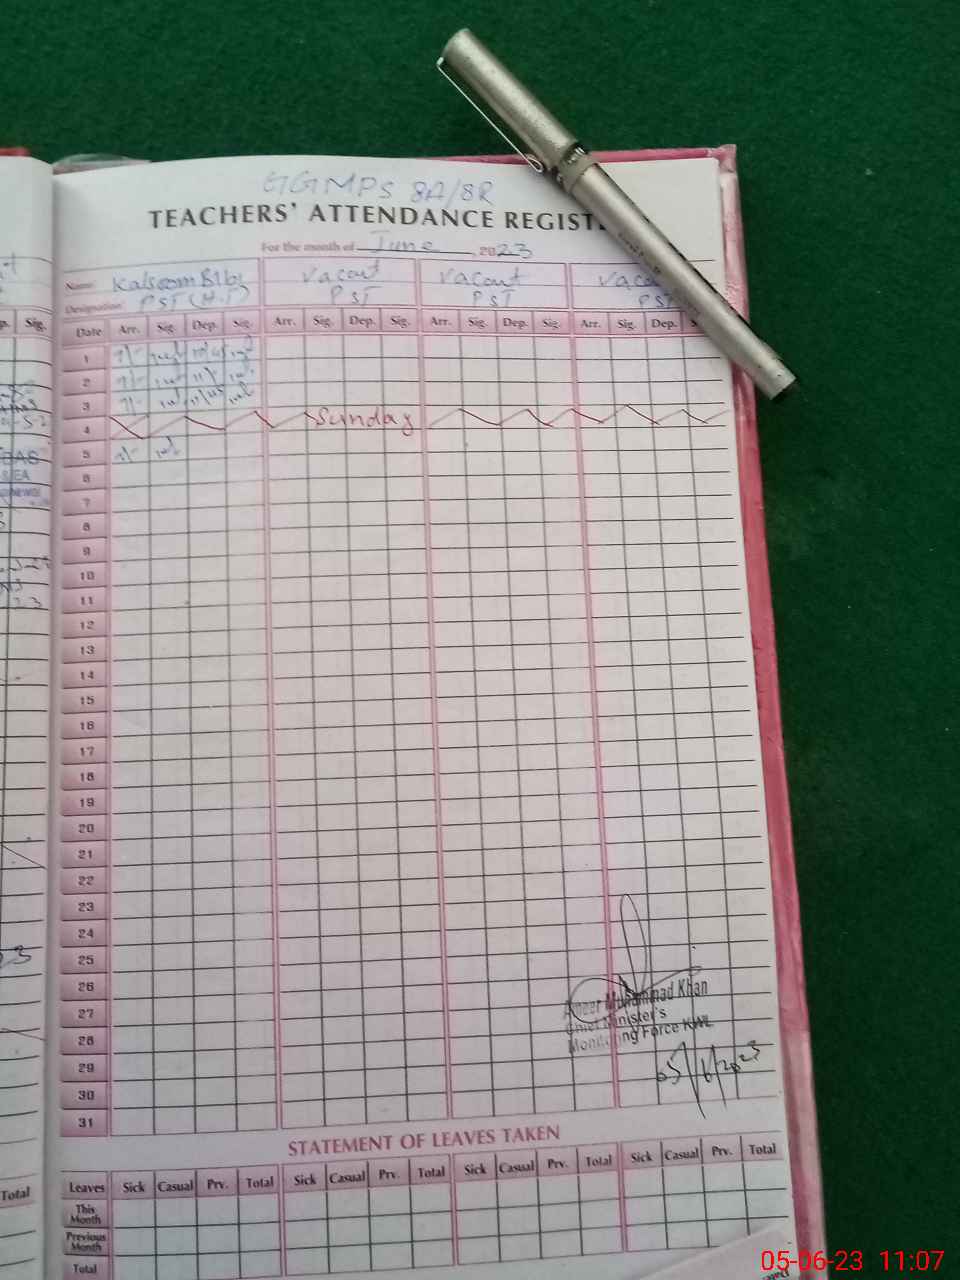 GGMPS 8A/8R
TEACHERS' ATTENDANCE REGIST
For the month of June 2023
Name Kalsoom Bibi Vacant Vacant Vaca
Designation PST (H.T) PST PST PST
Sig.
Date Arr. Sig. Dep. Sig. Arr. Sig. Dep. Sig. Arr. Sig. Dep. Sig. Arr. Sig. Dep. S
1
2
3
4 Sunday
5
6
7
8
9
10
11
12
13
14
15
16
17
18
19
20
21
22
23
24
25
26
27
28
29
30
31
Ameer Muhammad Khan
Chief Minister's
Monitoring Force KWL
05/6/2023
STATEMENT OF LEAVES TAKEN
Total
Leaves Sick Casual Prv. Total Sick Casual Prv. Total Sick Casual Prv. Total Sick Casual Prv. Total
This Month
Previous Month
Total
05-06-23 11:07